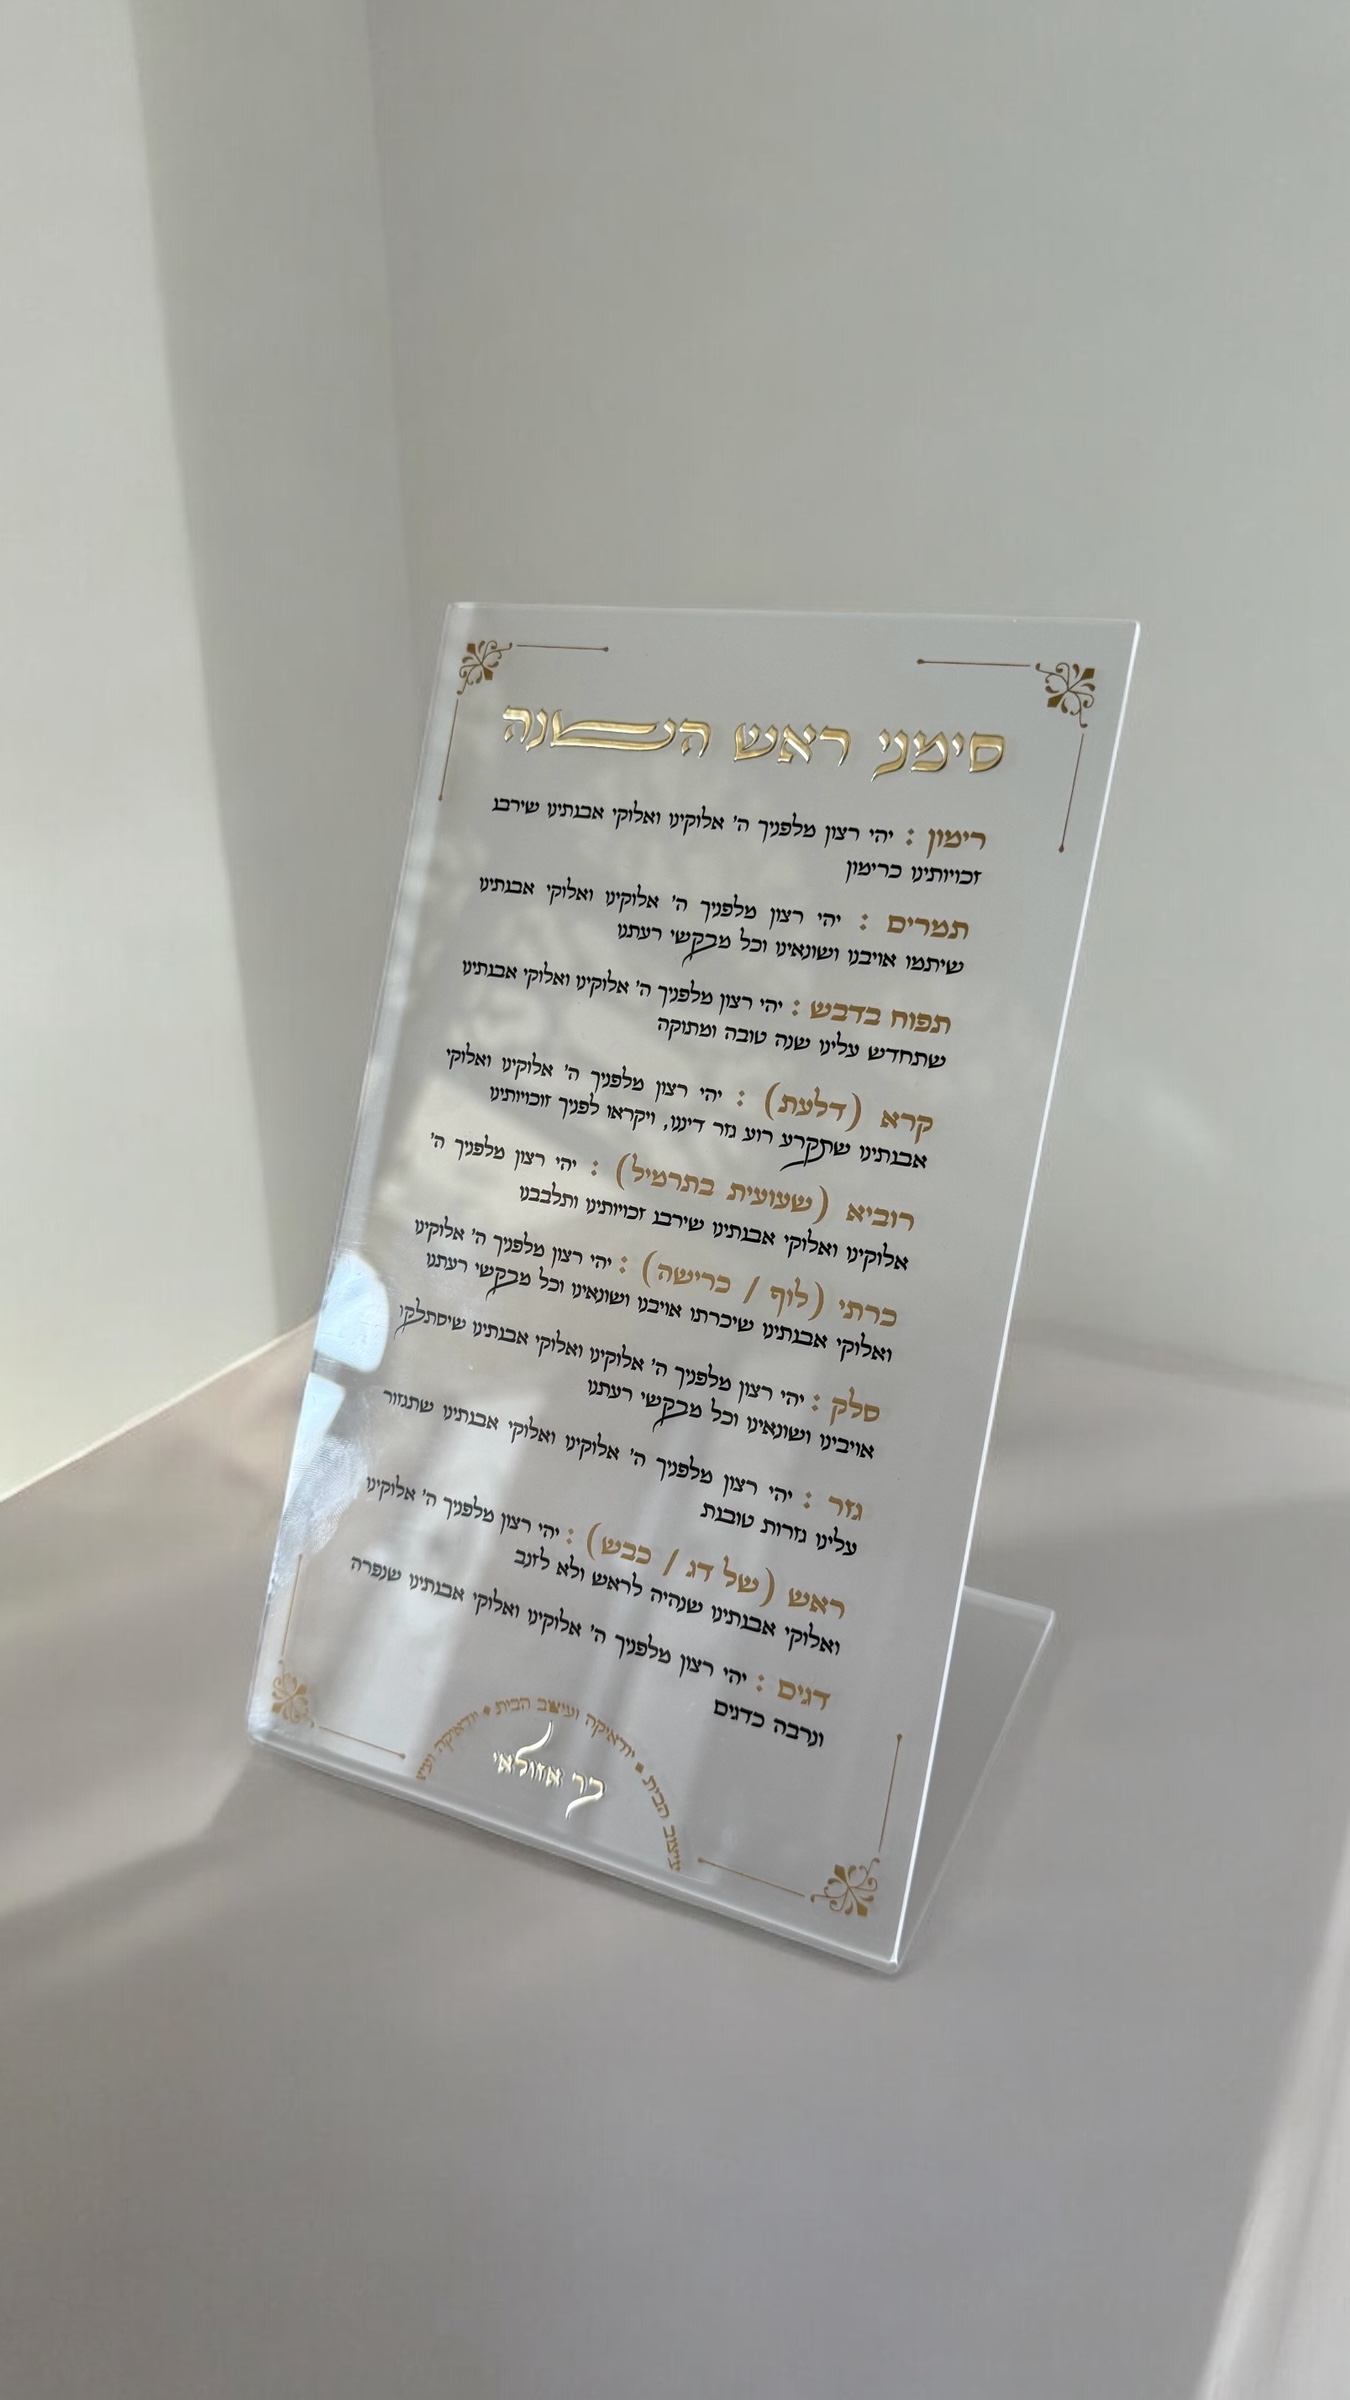 סימני ראש השנה
רימון : יהי רצון מלפניך ה' אלוקינו ואלוקי אבותינו שירבו
זכויותינו כרימון
תמרים : יהי רצון מלפניך ה' אלוקינו ואלוקי אבותינו
שיתמו אויבנו ושונאינו וכל מבקשי רעתנו
תפוח בדבש : יהי רצון מלפניך ה' אלוקינו ואלוקי אבותינו
שתחדש עלינו שנה טובה ומתוקה
קרא (דלעת) : יהי רצון מלפניך ה' אלוקינו ואלוקי
אבותינו שתקרע רוע גזר דיננו, ויקראו לפניך זוכויותינו
רוביא (שעועית בתרמיל) : יהי רצון מלפניך ה'
אלוקינו ואלוקי אבותינו שירבו זכויותינו ותלבבנו
כרתי (לוף / כרישה) : יהי רצון מלפניך ה' אלוקינו
ואלוקי אבותינו שיכרתו אויבנו ושונאינו וכל מבקשי רעתנו
סלק : יהי רצון מלפניך ה' אלוקינו ואלוקי אבותינו שיסתלקו
אויבינו ושונאינו וכל מבקשי רעתנו
גזר : יהי רצון מלפניך ה' אלוקינו ואלוקי אבותינו שתגזור
עלינו גזרות טובות
ראש (של דג / כבש) : יהי רצון מלפניך ה' אלוקינו
ואלוקי אבותינו שנהיה לראש ולא לזנב
דגים : יהי רצון מלפניך ה' אלוקינו ואלוקי אבותינו שנפרה
ונרבה כדגים
עיצוב הבית • יודאיקה ועיצוב הבית • יודאיקה ועיצ
בר אזולאי